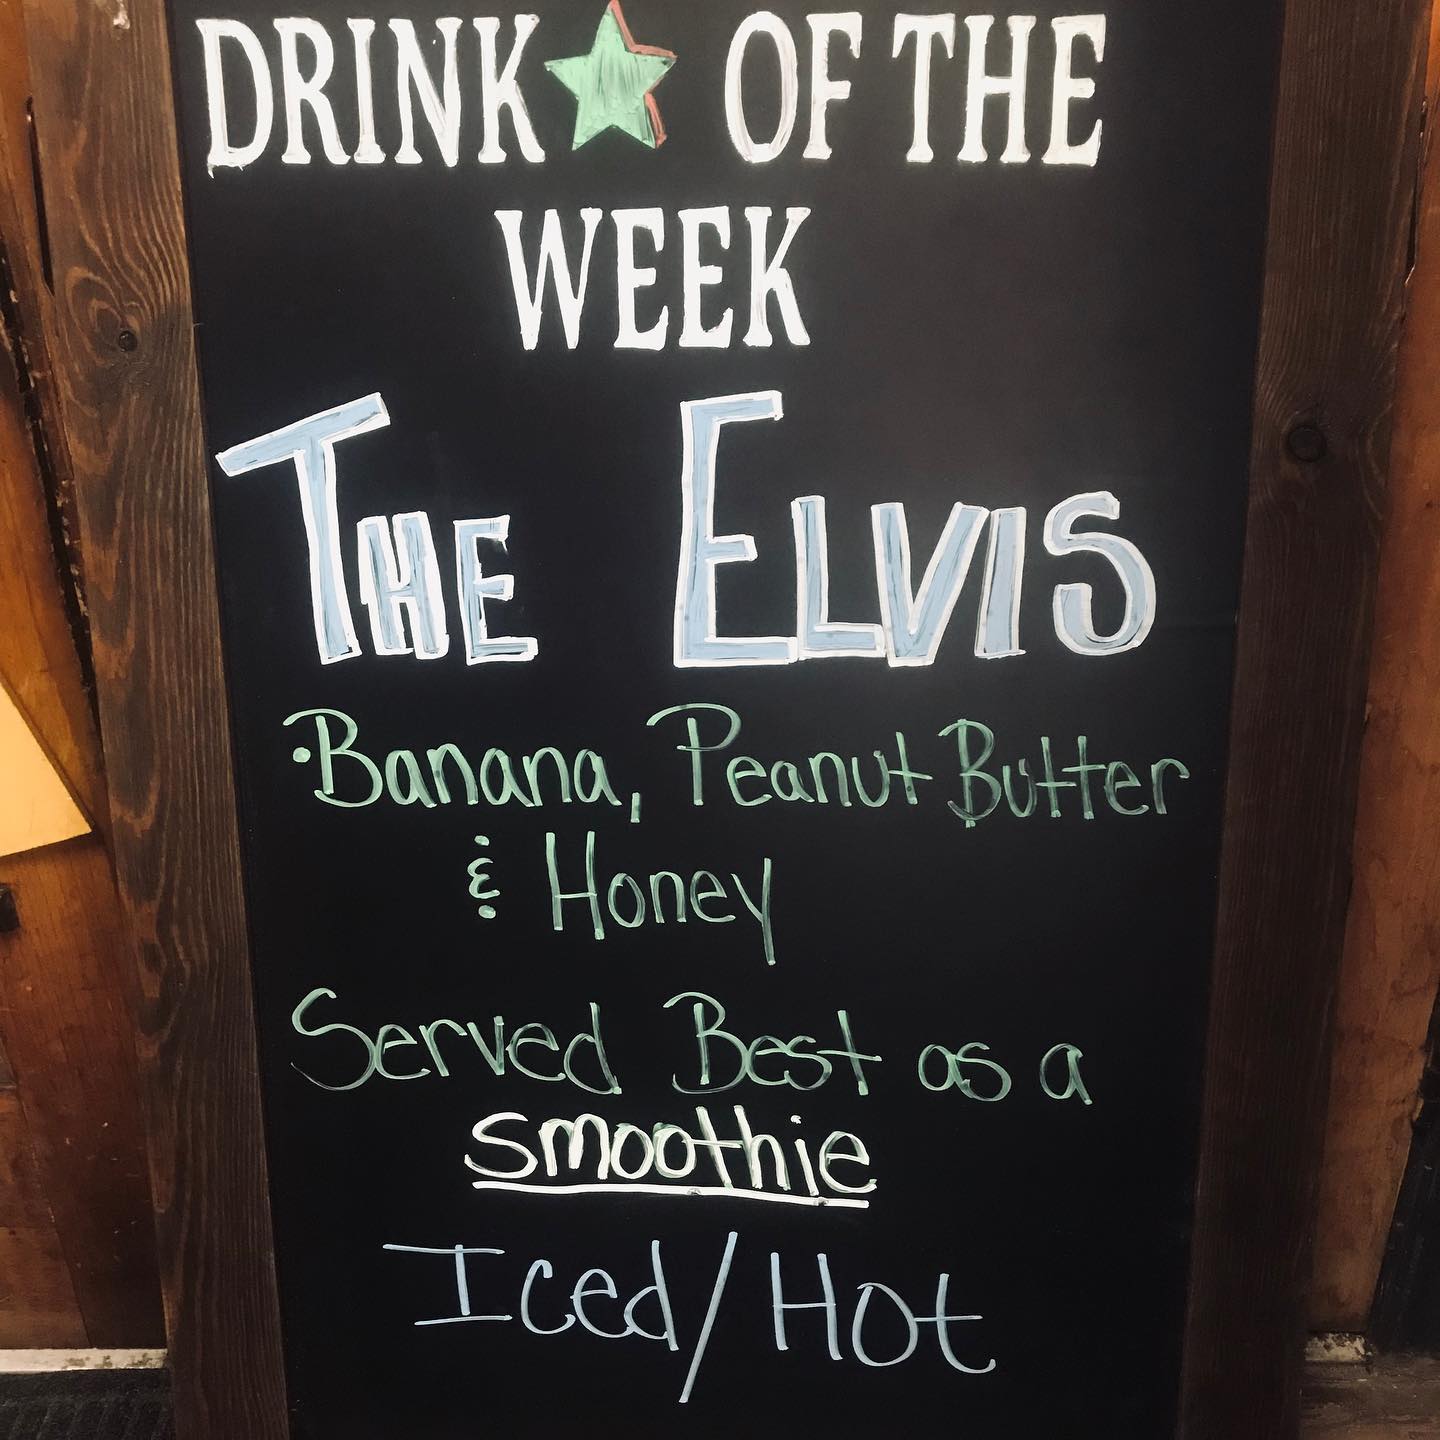 DRINK OF THE
WEEK
THE ELVIS
·Banana, Peanut Butter
& Honey
Served Best as a
smoothie
Iced/Hot